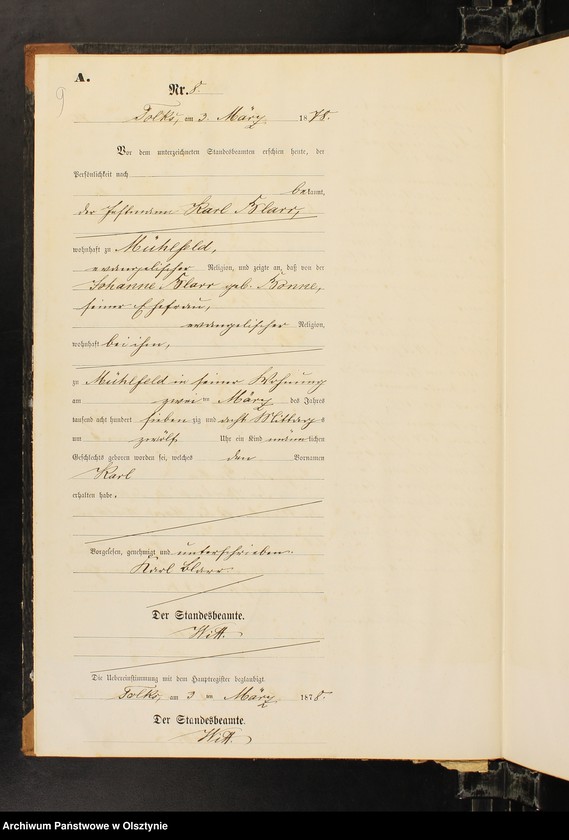 A.
9
Nr. 8.
Tolks, am 3 März 1878.
Vor dem unterzeichneten Standesbeamten erschien heute, der
Persönlichkeit nach
bekannt,
der Karl Blarr,
wohnhaft zu Mühlfeld,
evangelischer Religion, und zeigte an, daß von der
Johanne Blarr geb. Bönne,
seiner Ehefrau,
evangelischer Religion,
wohnhaft bei ihm,
zu Mühlfeld in seiner Wohnung
am zwei ten März des Jahres
tausend acht hundert sieben zig und acht Mittags
um zwölf Uhr ein Kind männlichen
Geschlechts geboren worden sei, welches den Vornamen
Karl
erhalten habe.
Vorgelesen, genehmigt und unterschrieben.
Karl Blarr
Der Standesbeamte.
Witt.
Die Uebereinstimmung mit dem Hauptregister beglaubigt.
Tolks, am 3 ten März 1878.
Der Standesbeamte.
Witt.
Archiwum Państwowe w Olsztynie